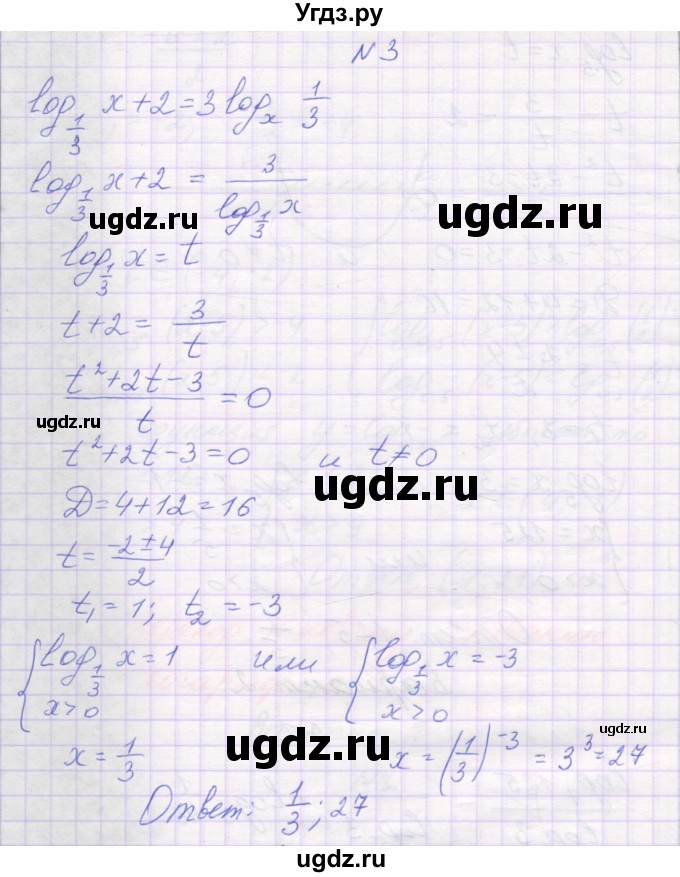 Угдз.ру
N 3
log_{1/3} x + 2 = 3 log_x 1/3
log_{1/3} x + 2 = 3 / log_{1/3} x
ugdz.ru
ugdz.ru
log_{1/3} x = t
t + 2 = 3/t
(t² + 2t - 3)/t = 0
ugdz.ru
t² + 2t - 3 = 0 и t ≠ 0
ugdz.ru
D = 4 + 12 = 16
t = (-2 ± 4)/2
t₁ = 1; t₂ = -3
{ log_{1/3} x = 1 или { log_{1/3} x = -3
x > 0 x > 0
ugdz.ru
x = 1/3 x = (1/3)^{-3} = 3³ = 27
ugdz.ru
ugdz.ru
Ответ: 1/3; 27
ugdz.ru